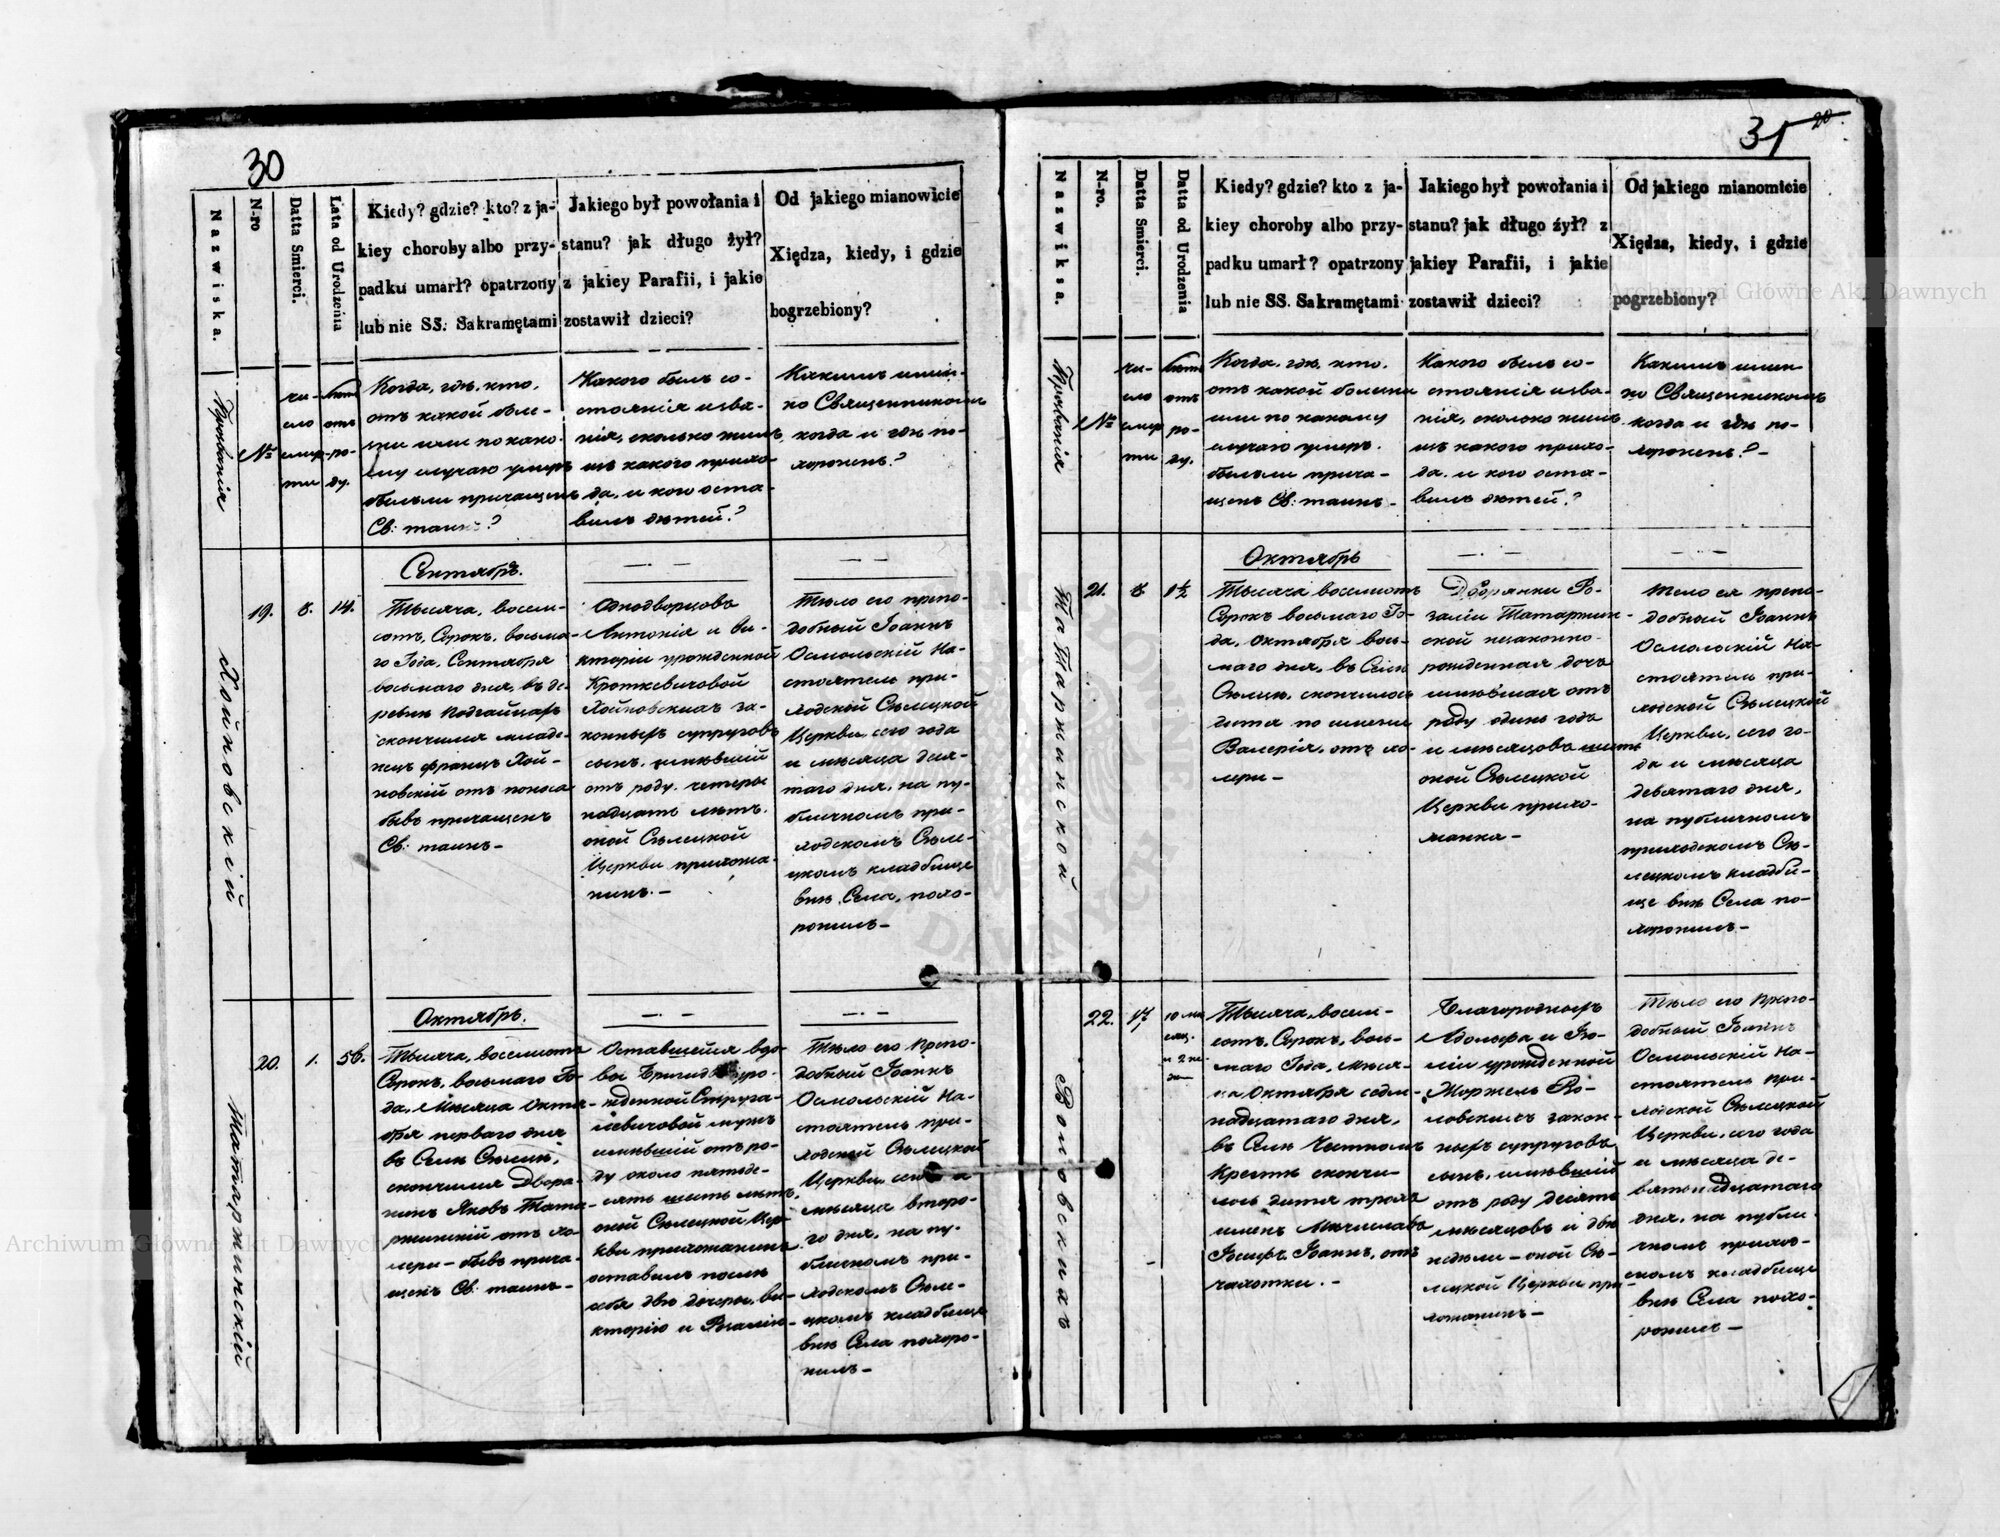 30
Nazwiska.
N-ro
Data Smierci.
Lata od Urodzenia
Kiedy? gdzie? kto? z ja-
kiey choroby albo przy-
padku umarł? opatrzony
lub nie SS. Sakramętami
Jakiego był powołania i
stanu? jak długo żył?
z jakiey Parafii, i jakie
zostawił dzieci?
Od jakiego mianowicie
Xiędza, kiedy, i gdzie
bogrzebiony?
Прозванія
№
чи-
сло
смер-
ти
лѣта
отъ
ро-
ду.
Когда, гдѣ, кто,
отъ какой болѣ-
зни или по како-
му случаю умеръ
былъ ли причащенъ
Св: таинъ?
Какого былъ со-
стоянія изва-
нія, сколько жилъ
изъ какого прихо-
да, и кого оста-
вилъ дѣтей?
Какимъ имен-
но Священникомъ
когда и гдѣ по-
хороненъ?
Хойновскій
19.
8.
14.
Сентябрь.
Тысяча, восем-
сотъ, Сорокъ, восьма-
го Года, Сентября
восьмаго дня, въ де-
ревнѣ Подгайцахъ
скончился младе-
нецъ Францъ Хой-
новскій отъ поноса
бывъ причащенъ
Св: таинъ —
Однодворцовъ
Антонія и Ви-
кторіи урожденной
Кроткевичовой
Хойновскихъ за-
конныхъ супруговъ
сынъ, имѣвшій
отъ роду, четыре
надцать лѣтъ.
оной Сѣлецкой
Церкви прихожа-
нинъ. —
Тѣло его препо-
добный Іоаннъ
Осмольскій На-
стоятель при-
ходской Сѣлецкой
Церкви, сего года
и мѣсяца девя-
таго дня, на пу-
бличномъ при-
ходскомъ Сѣле-
цкомъ кладбище
внѣ Села, похо-
ронилъ —
Татаржинскій
20.
1.
56.
Октябрь.
Тысяча, восемсотъ
Сорокъ, восьмаго Го-
да, Мѣсяца Октя-
бря перваго дня
въ Селѣ Сѣльцѣ,
скончился Дворя-
нинъ Яковъ Тата-
ржинскій отъ хо-
леры — бывъ прича-
щенъ Св: таинъ —
Оставшейся вдо-
вы Бригиды уро-
жденной Струга-
левичовой мужъ
имѣвшій отъ ро-
ду около пятьде-
сятъ шесть лѣтъ,
оной Сѣлецкой Цер-
кви прихожанинъ
оставилъ послѣ
себя двѣ дочери, Ви-
кторію и Розалію —
Тѣло его Препо-
добный Іоаннъ
Осмольскій На-
стоятель при-
ходской Сѣлецкой
Церкви, сего
мѣсяца второ-
го дня, на пу-
бличномъ при-
ходскомъ Сѣле-
цкомъ кладбище
внѣ Села похоро-
нилъ —
31
20.
Nazwiksa.
N-ro.
Data Smierci.
Data od Urodzenia
Kiedy? gdzie? kto z ja-
kiey choroby albo przy-
padku umarł? opatrzony
lub nie SS. Sakramętami
Jakiego był powołania i
stanu? jak długo żył? z
jakiey Parafii, i jakie
zostawił dzieci?
Od jakiego mianomicie
Xiędza, kiedy, i gdzie
pogrzebiony?
Прозванія
№
чи-
сло
смер
ти
лѣта
отъ
ро-
ду.
Когда, гдѣ, кто,
отъ какой болѣзни
или по какому
случаю умеръ.
былъ ли прича-
щенъ Св: таинъ —
Какого былъ со-
стоянія изва-
нія, сколько жилъ
изъ какого прихо-
да, и кого оста-
вилъ дѣтей?
Какимъ имен-
но Священникомъ
когда и гдѣ по-
хороненъ? —
Татаржинской
21.
8.
1½
Октябрь
Тысяча восемсотъ
Сорокъ восьмаго Го-
да, Октября вось-
маго дня, въ Селѣ
Сѣльцѣ, скончилось
дитя по имени
Валерія, отъ хо-
леры —
Дворянки Ро-
заліи Татаржин-
ской незаконно-
рожденная дочь
имѣвшая отъ
роду одинъ годъ
и мѣсяцовъ шесть
оной Сѣлецкой
Церкви прихо-
жанка —
Тело ея препо-
добный Іоаннъ
Осмольскій На-
стоятель при-
ходской Сѣлецкой
Церкви, сего го-
да и мѣсяца
девятаго дня,
на публичномъ
приходскомъ Сѣ-
лецкомъ кладби-
ще внѣ Села по-
хоронилъ —
Воловскихъ
22.
17.
10 мѣ
сяц.
и 2 не-
дѣ
Тысяча, восем-
сотъ, Сорокъ, вось-
маго Года, мѣся-
ца Октября седм-
надцатаго дня,
въ Селѣ Честномъ
Крестѣ скончи-
лось дитя трохъ
именъ Мечиславъ
Іосифъ, Іоаннъ, отъ
чахотки. —
Благородныхъ
Адольфа и Ю-
ліи урожденной
Моржель Во-
ловскихъ закон-
ныхъ супруговъ
сынъ, имѣвшій
отъ роду десять
мѣсяцовъ и двѣ
недѣли — оной Сѣ-
лецкой Церкви при-
хожанинъ —
Тѣло его Препо-
добный Іоаннъ
Осмольскій На-
стоятель при-
ходской Сѣлецкой
Церкви, сего года
и мѣсяца де-
вятонадцатаго
дня, на публи-
чномъ приход-
скомъ кладбище
внѣ Села похо-
ронилъ —
Archiwum Główne Akt Dawnych
Archiwum Główne Akt Dawnych